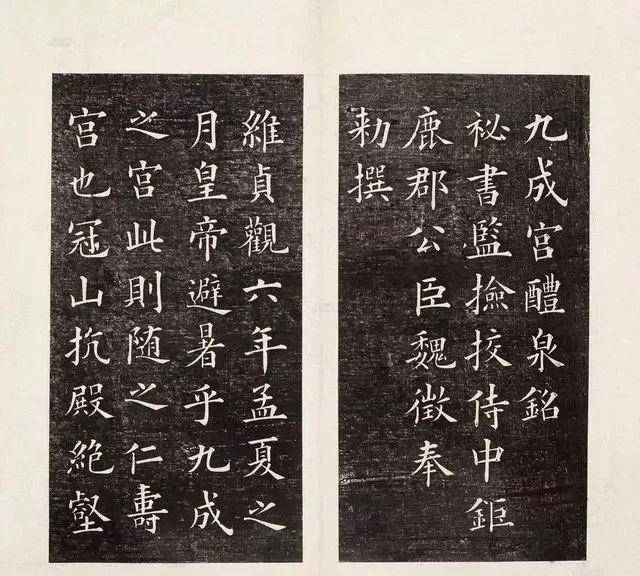 九成宫醴泉銘
秘書監撿挍侍中鉅
鹿郡公臣魏徵奉
勑撰
維貞觀六年孟夏之
月皇帝避暑乎九成
之宫此則随之仁壽
宫也冠山抗殿絶壑